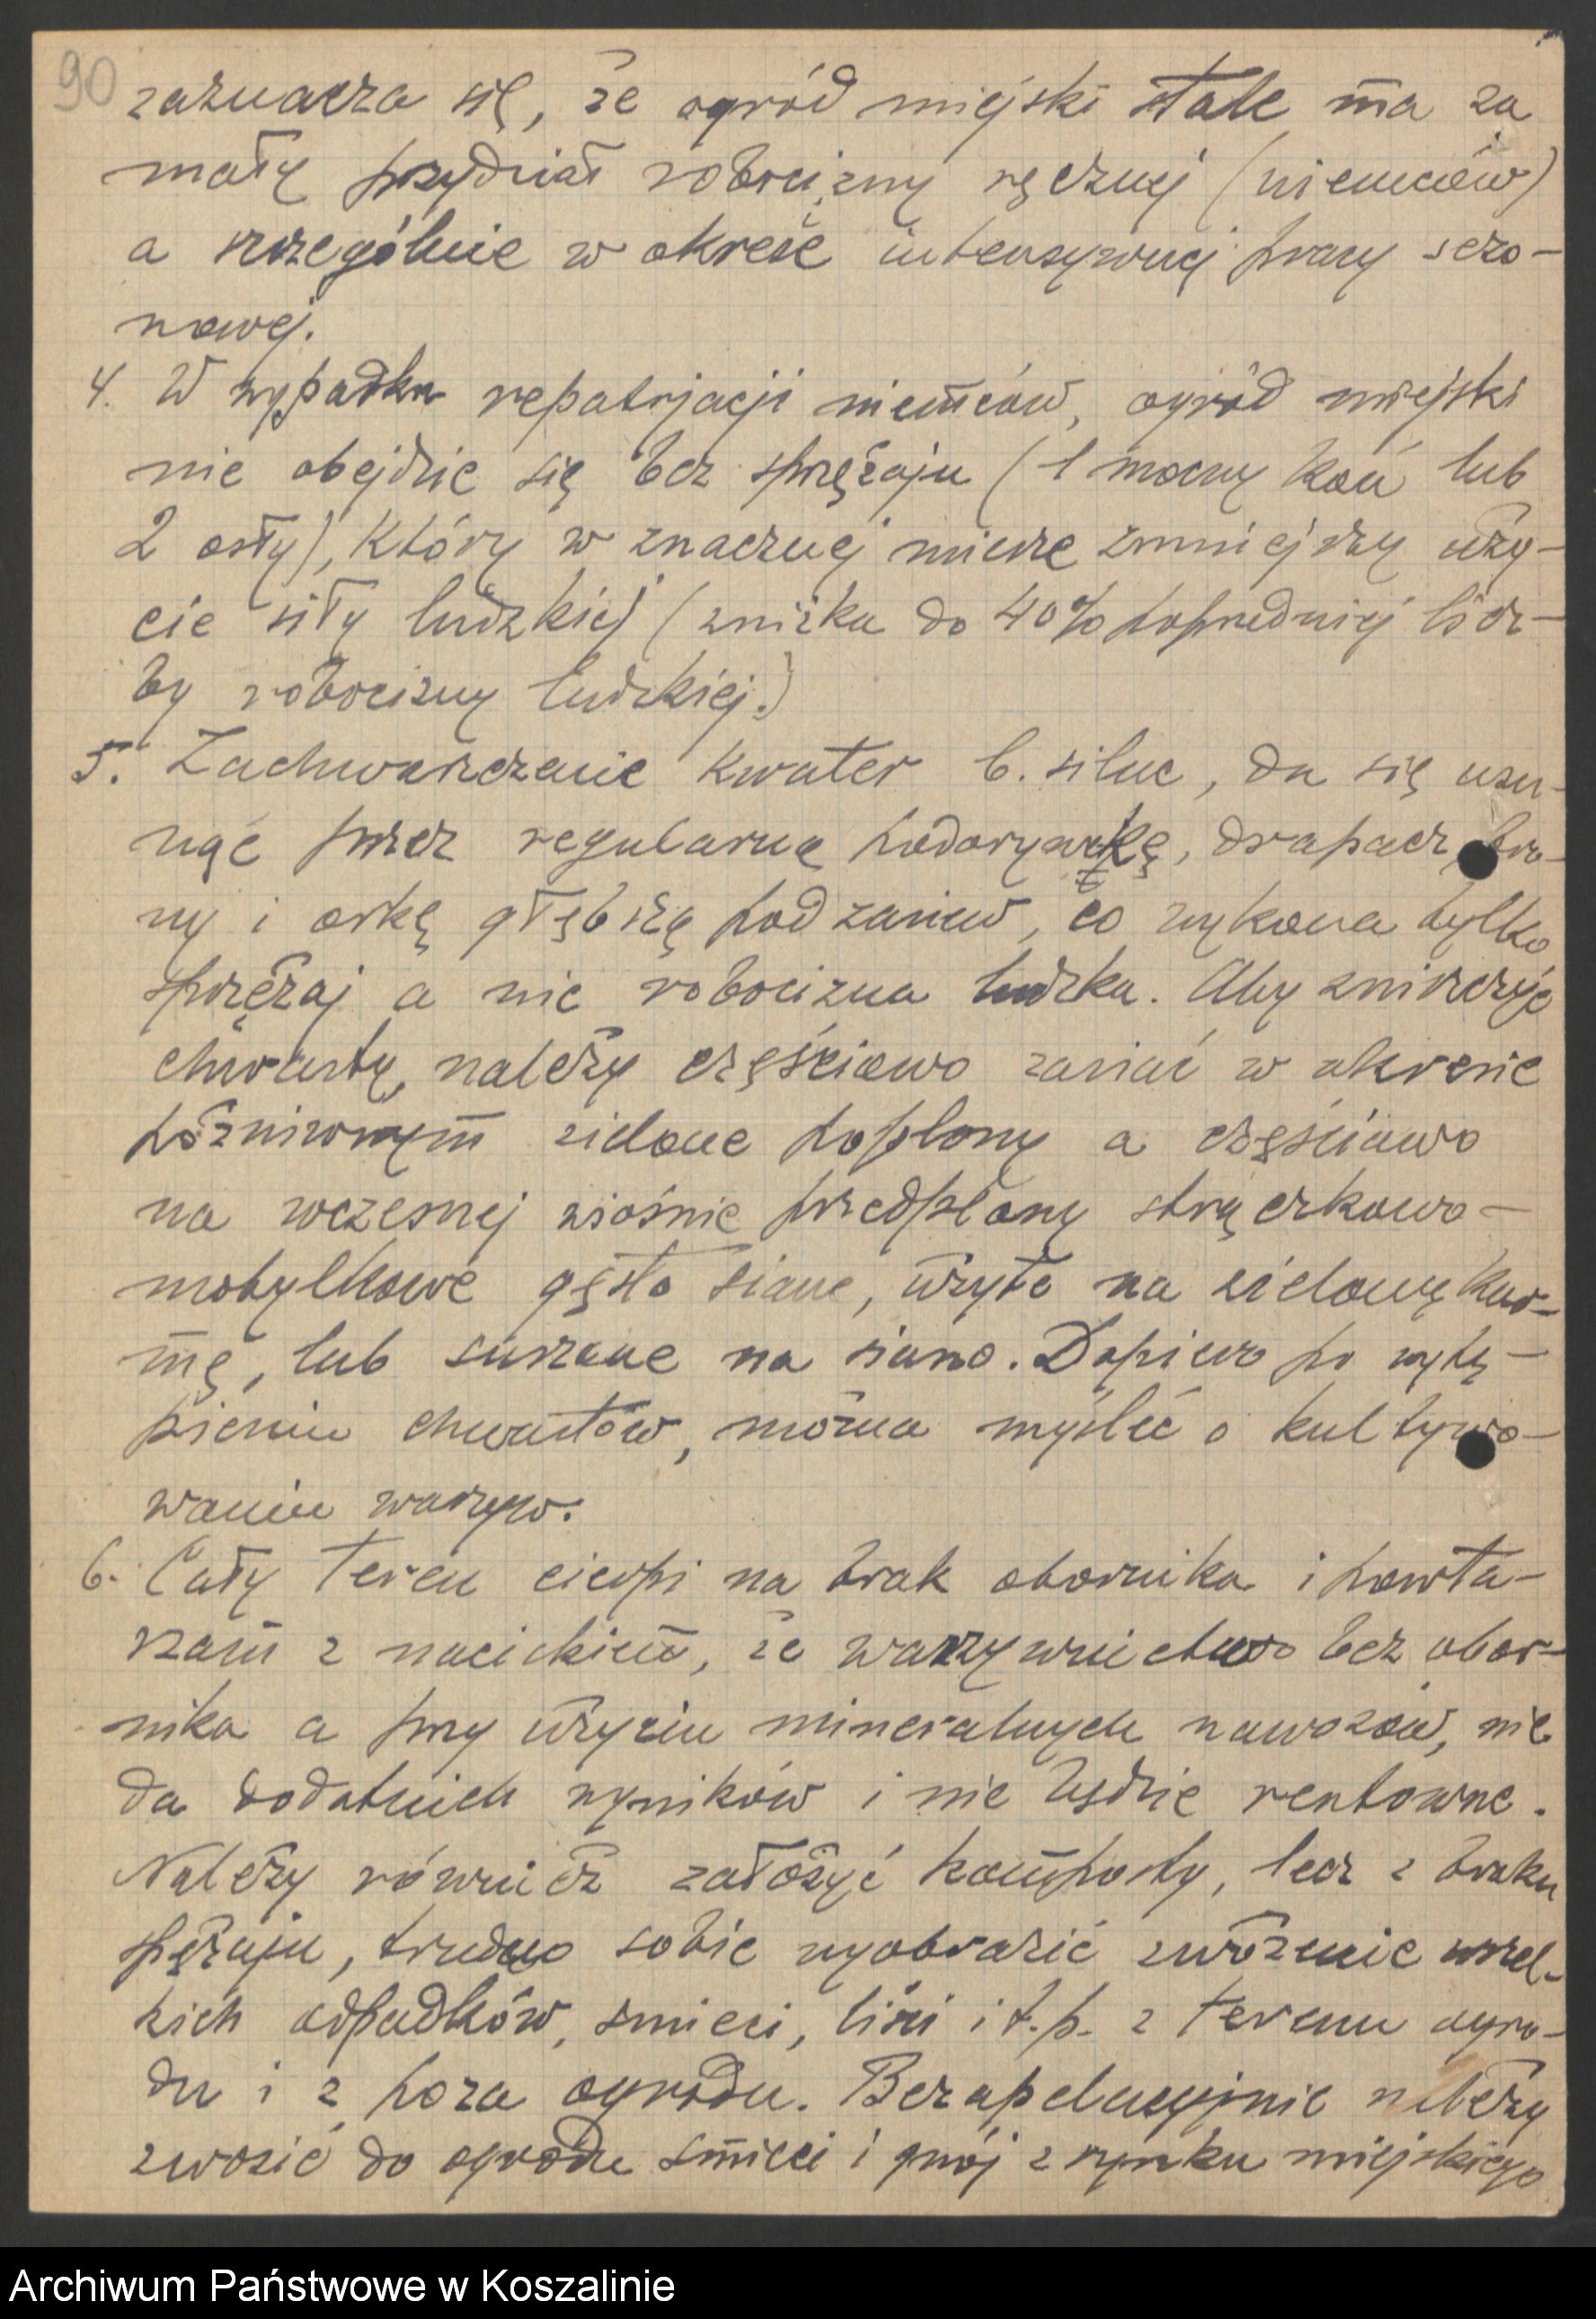 90
zaznacza się, że ogród miejski stale ma za
mały przydział robocizny ręcznej (niemców)
a szczególnie w okresie intensywnej pracy sezo-
nowej.
4. W wypadku repatrjacji niemców, ogród miejski
nie obejdzie się bez sprzężaju (1 mocny koń lub
2 osły), który w znacznej mierze zmniejszy uży-
cie siły ludzkiej (zniżka do 40% poprzedniej licz-
by robocizny ludzkiej.)
5. Zachwaszczenie kwater b. silne, da się usu-
nąć przez regularną podorywkę, drapacz, bro-
ny i orkę głębszą pod zasiew, co wykona tylko
sprzężaj a nie robocizna ludzka. Aby zniszczyć
chwasty, należy częściowo zasiać w okresie
późniwnym zielone poplony a częściowo
na wczesnej wiośnie przedplony strączkowo-
motylkowe gęsto siane, użyte na zieloną kar-
mę, lub suszone na siano. Dopiero po wytę-
pieniu chwastów, można myśleć o kultywo-
waniu warzyw.
6. Cały teren cierpi na brak obornika i powta-
rzam z naciskiem, że warzywnictwo bez obor-
nika a przy użyciu mineralnych nawozów, nie
da dodatnich wyników i nie będzie rentowne.
Należy również założyć komposty, lecz z braku
spężaju, trudno sobie wyobrazić zwożenie wszel-
kich odpadków, śmieci, liści i t.p. z terenu ogro-
du i z poza ogrodu. Bezapelacyjnie należy
zwozić do ogrodu śmieci i gnój z rynku miejskiego
Archiwum Państwowe w Koszalinie